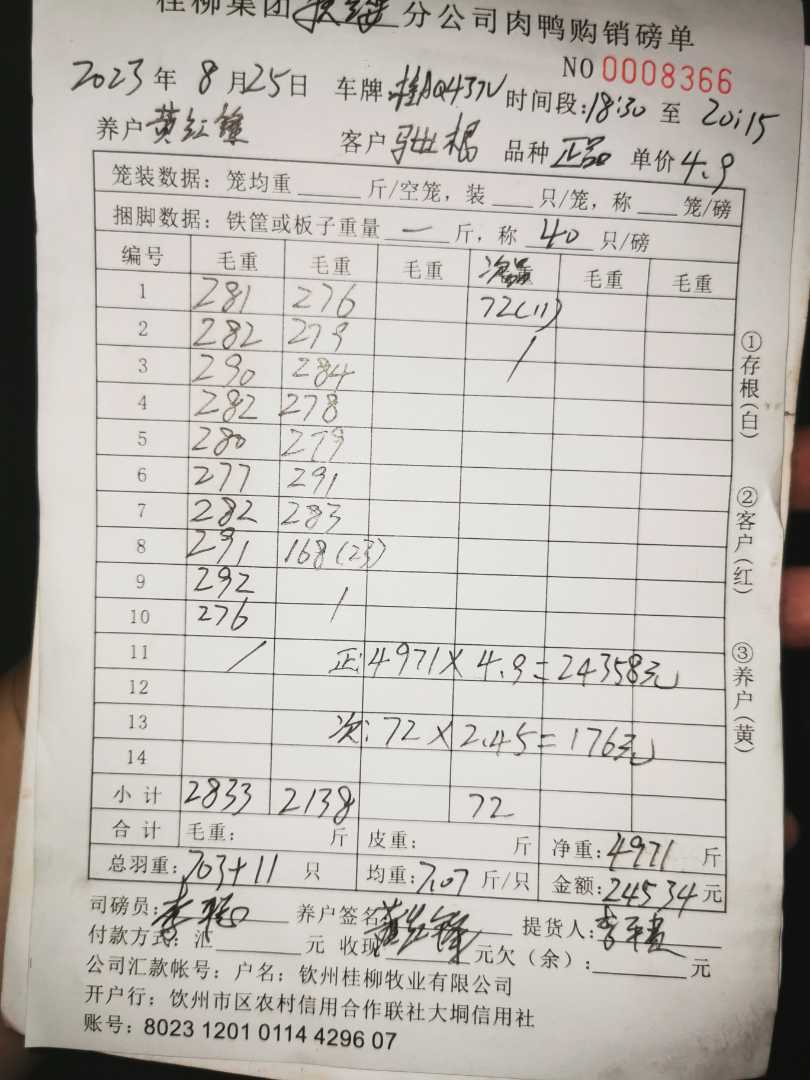 桂柳集团 分公司肉鸭购销磅单
NO 0008366
2023年8月25日 车牌:桂AQ437V 时间段:18:30 至 20:15
养户 黄红锋 客户 根 品种 正品 单价 4.9
笼装数据:笼均重 斤/空笼,装 只/笼,称 笼/磅
捆脚数据:铁筐或板子重量 一 斤,称 40 只/磅
编号 毛重 毛重 毛重 次品 毛重 毛重
1 281 276 72(11)
2 282 279 /
3 290 284
4 282 278
5 280 279
6 277 291
7 282 283
8 291 168(23)
9 292
10 276 /
11 / 正:4971×4.9=24358元
12
13 次:72×2.45=176元
14
小计 2833 2138 72
合计 毛重: 斤 皮重: 斤 净重:4971 斤
总羽重:703+11 只 均重:7.07 斤/只 金额:24534 元
司磅员: 养户签名: 黄红锋 提货人:
付款方式:汇 元 收现 元欠(余): 元
公司汇款帐号:户名:钦州桂柳牧业有限公司
开户行:饮州市区农村信用合作联社大垌信用社
账号:8023 1201 0114 4296 07
①存根(白)
②客户(红)
③养户(黄)